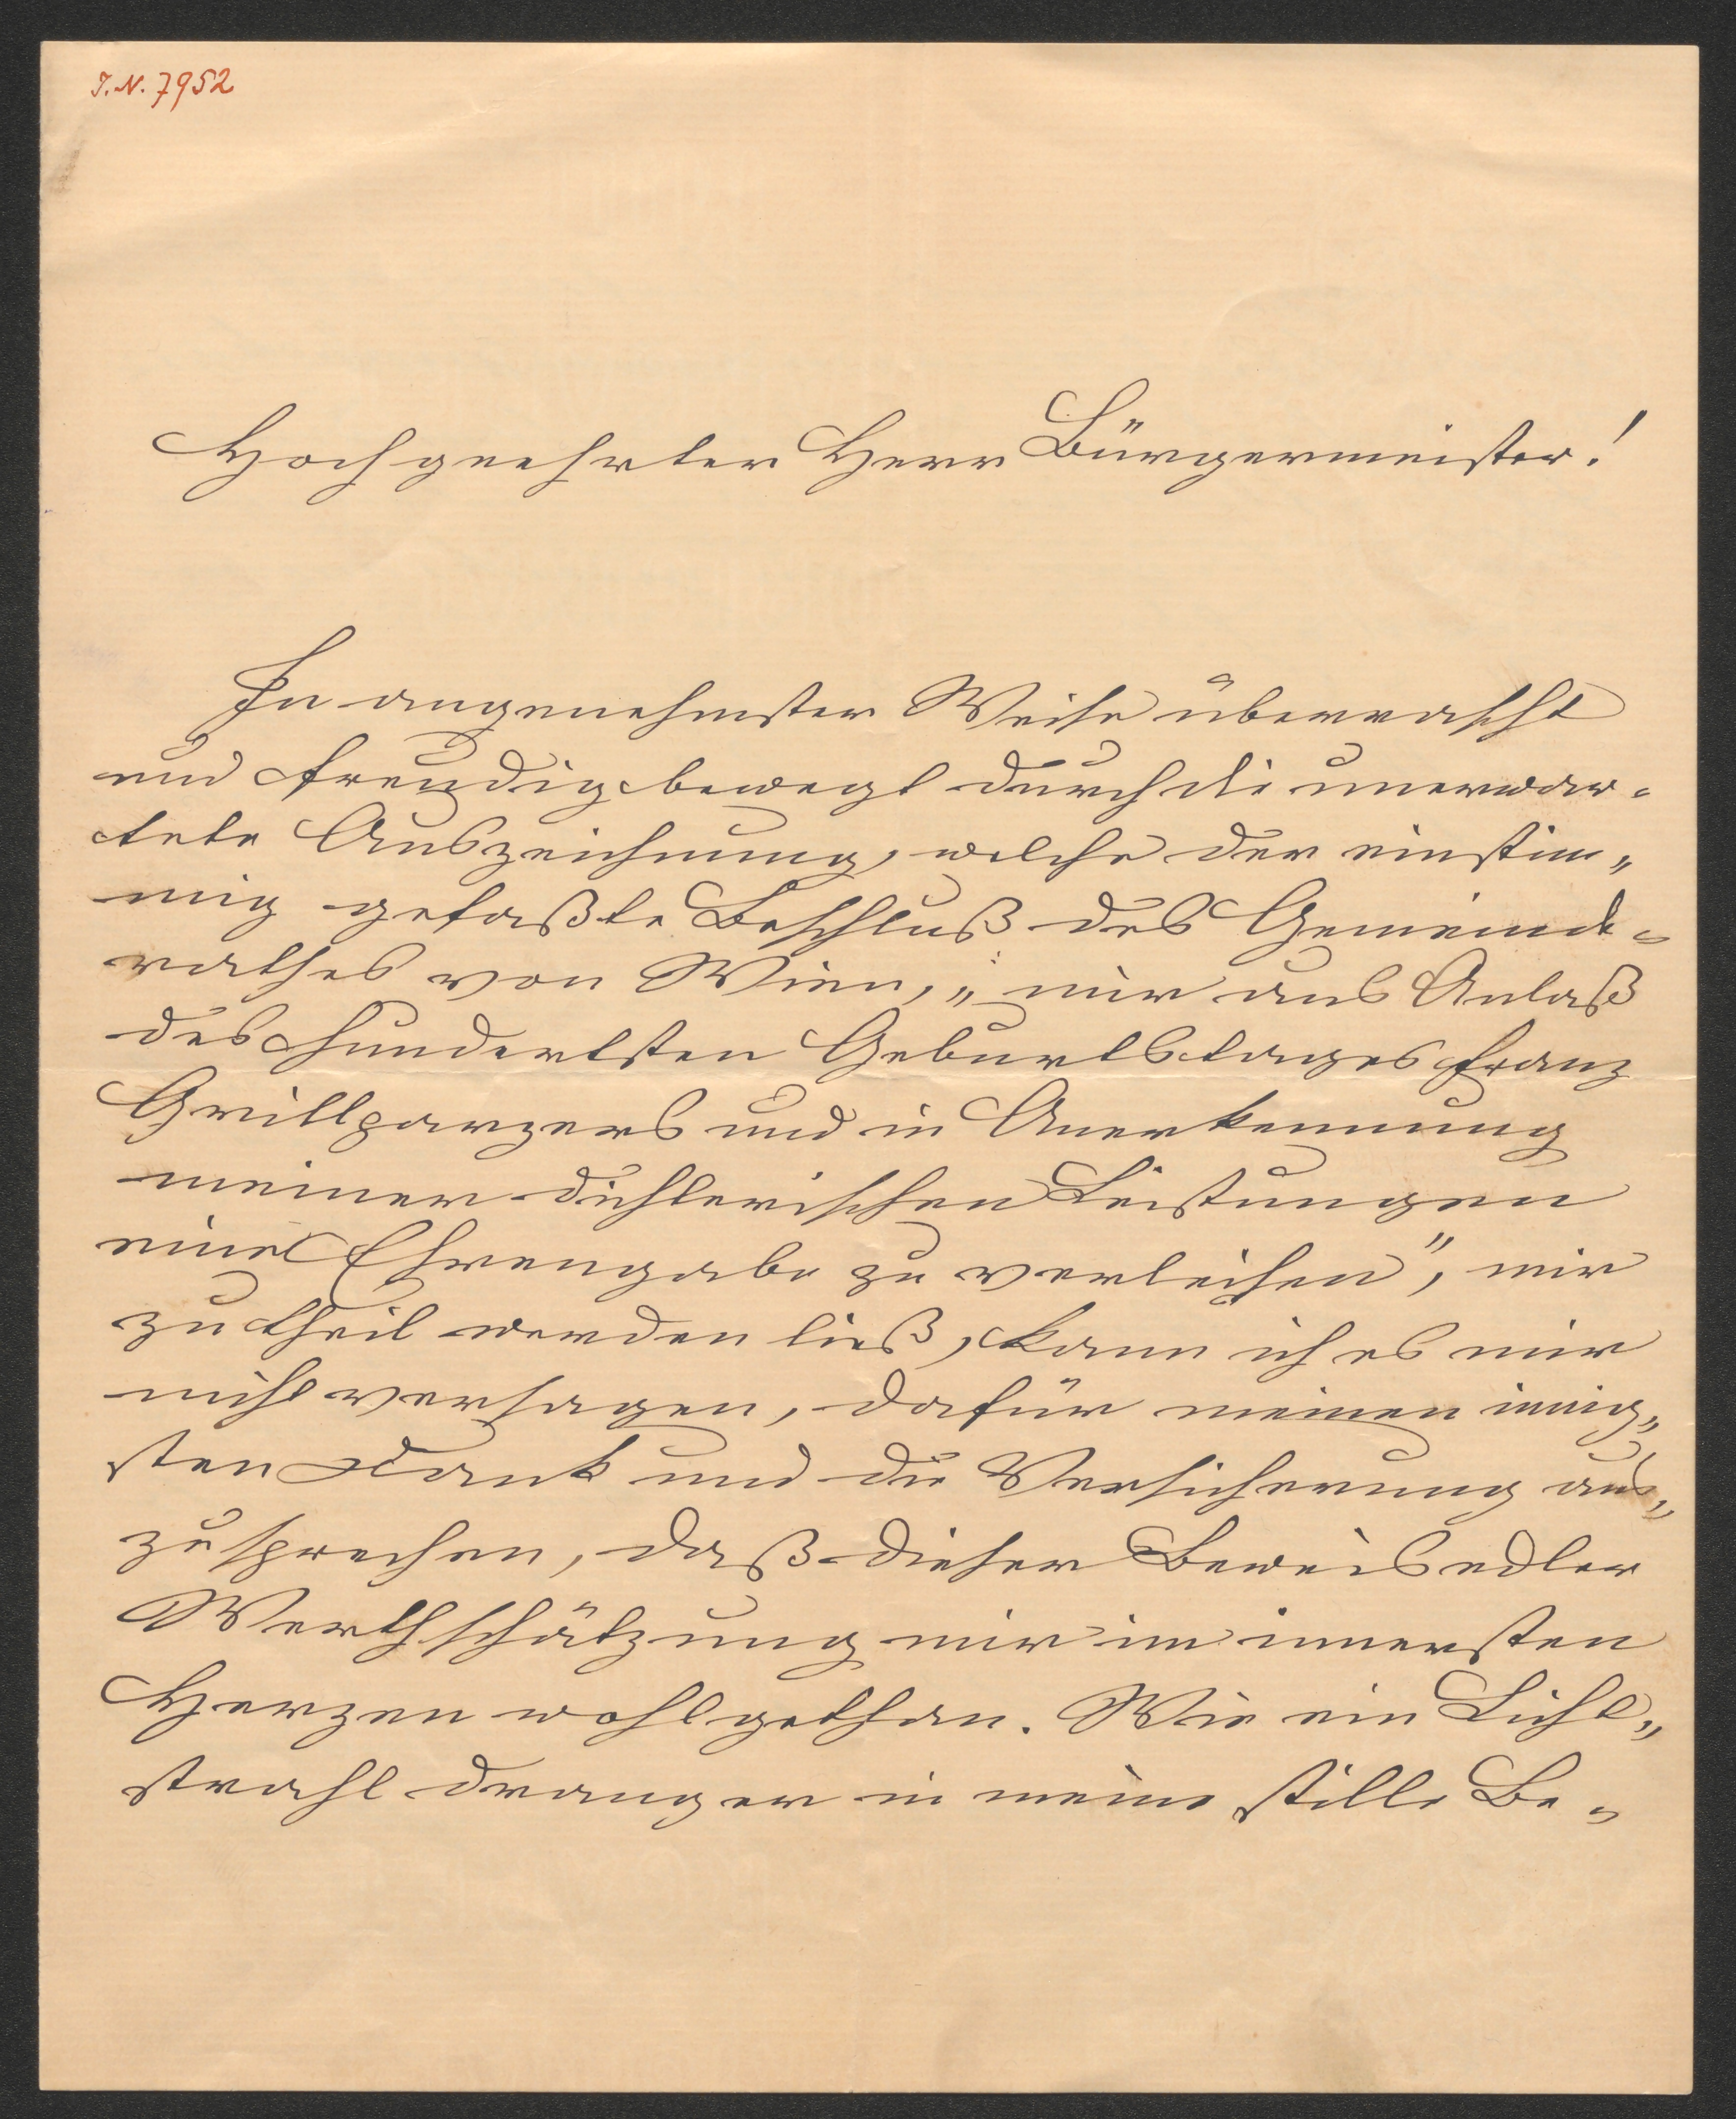 I.N. 7952
Hochgeehrter Herr Bürgermeister!
In angenehmster Weise überrascht
und freudig bewegt durch die unerwar-
tete Auszeichnung, welche der einstim-
mig gefaßte Beschluß des Gemeinde-
rathes von Wien, „mir aus Anlaß
des hundertsten Geburtstages Franz
Grillparzers und in Anerkennung
meiner dichterischen Leistungen
eine Ehrengabe zu verleihen", mir
zu theil werden ließ, kann ich es mir
nicht versagen, dafür meinen innig-
sten Dank und die Versicherung aus-
zusprechen, daß dieser Beweis edler
Werthschätzung mir im innersten
Herzen wohlgethan. Wie ein Licht-
strahl drang er in meine stille Be-